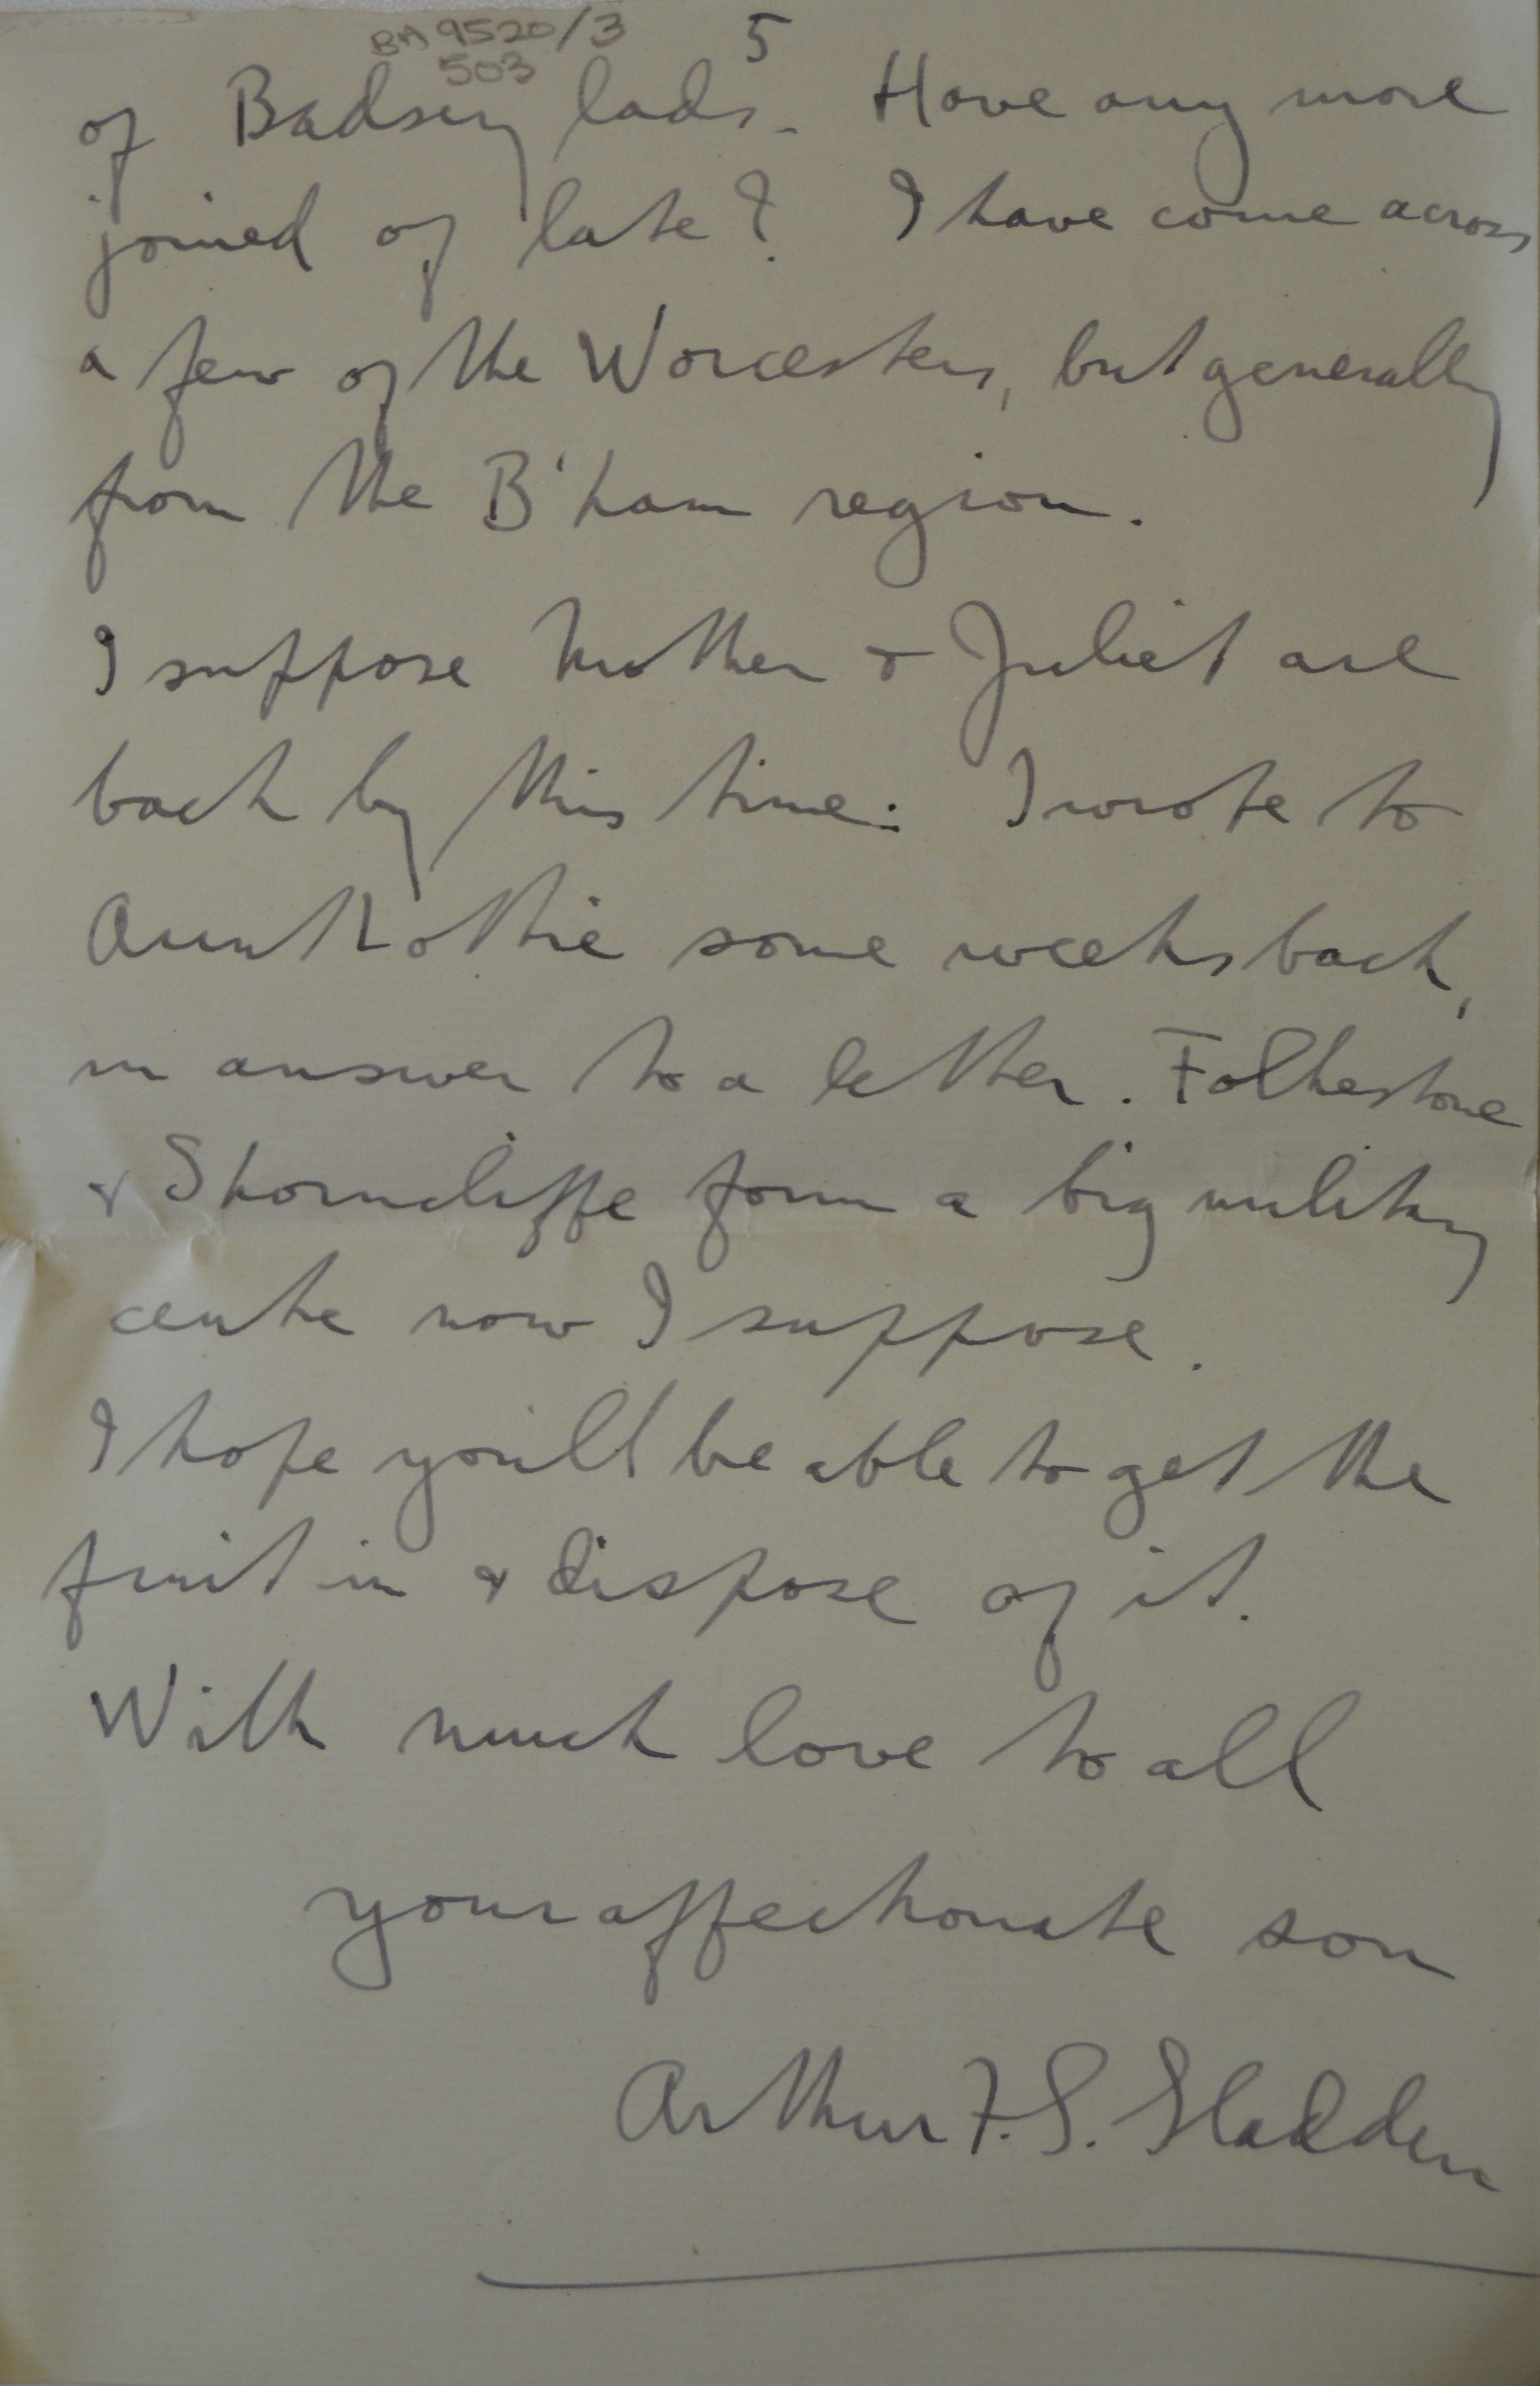 BA 9520/3
503
5
of Badsey lads. Have any more
joined of late? I have come across
a few of the Worcesters, but generally
from the B'ham region.
I suppose Mother & Juliet are
back by this time. I wrote to
Aunt Lottie some weeks back,
in answer to a letter. Folkestone
& Shorncliffe form a big military
centre now I suppose.
I hope you'll be able to get the
fruit in & dispose of it.
With much love to all
your affectionate son
Arthur F.S. Sladden